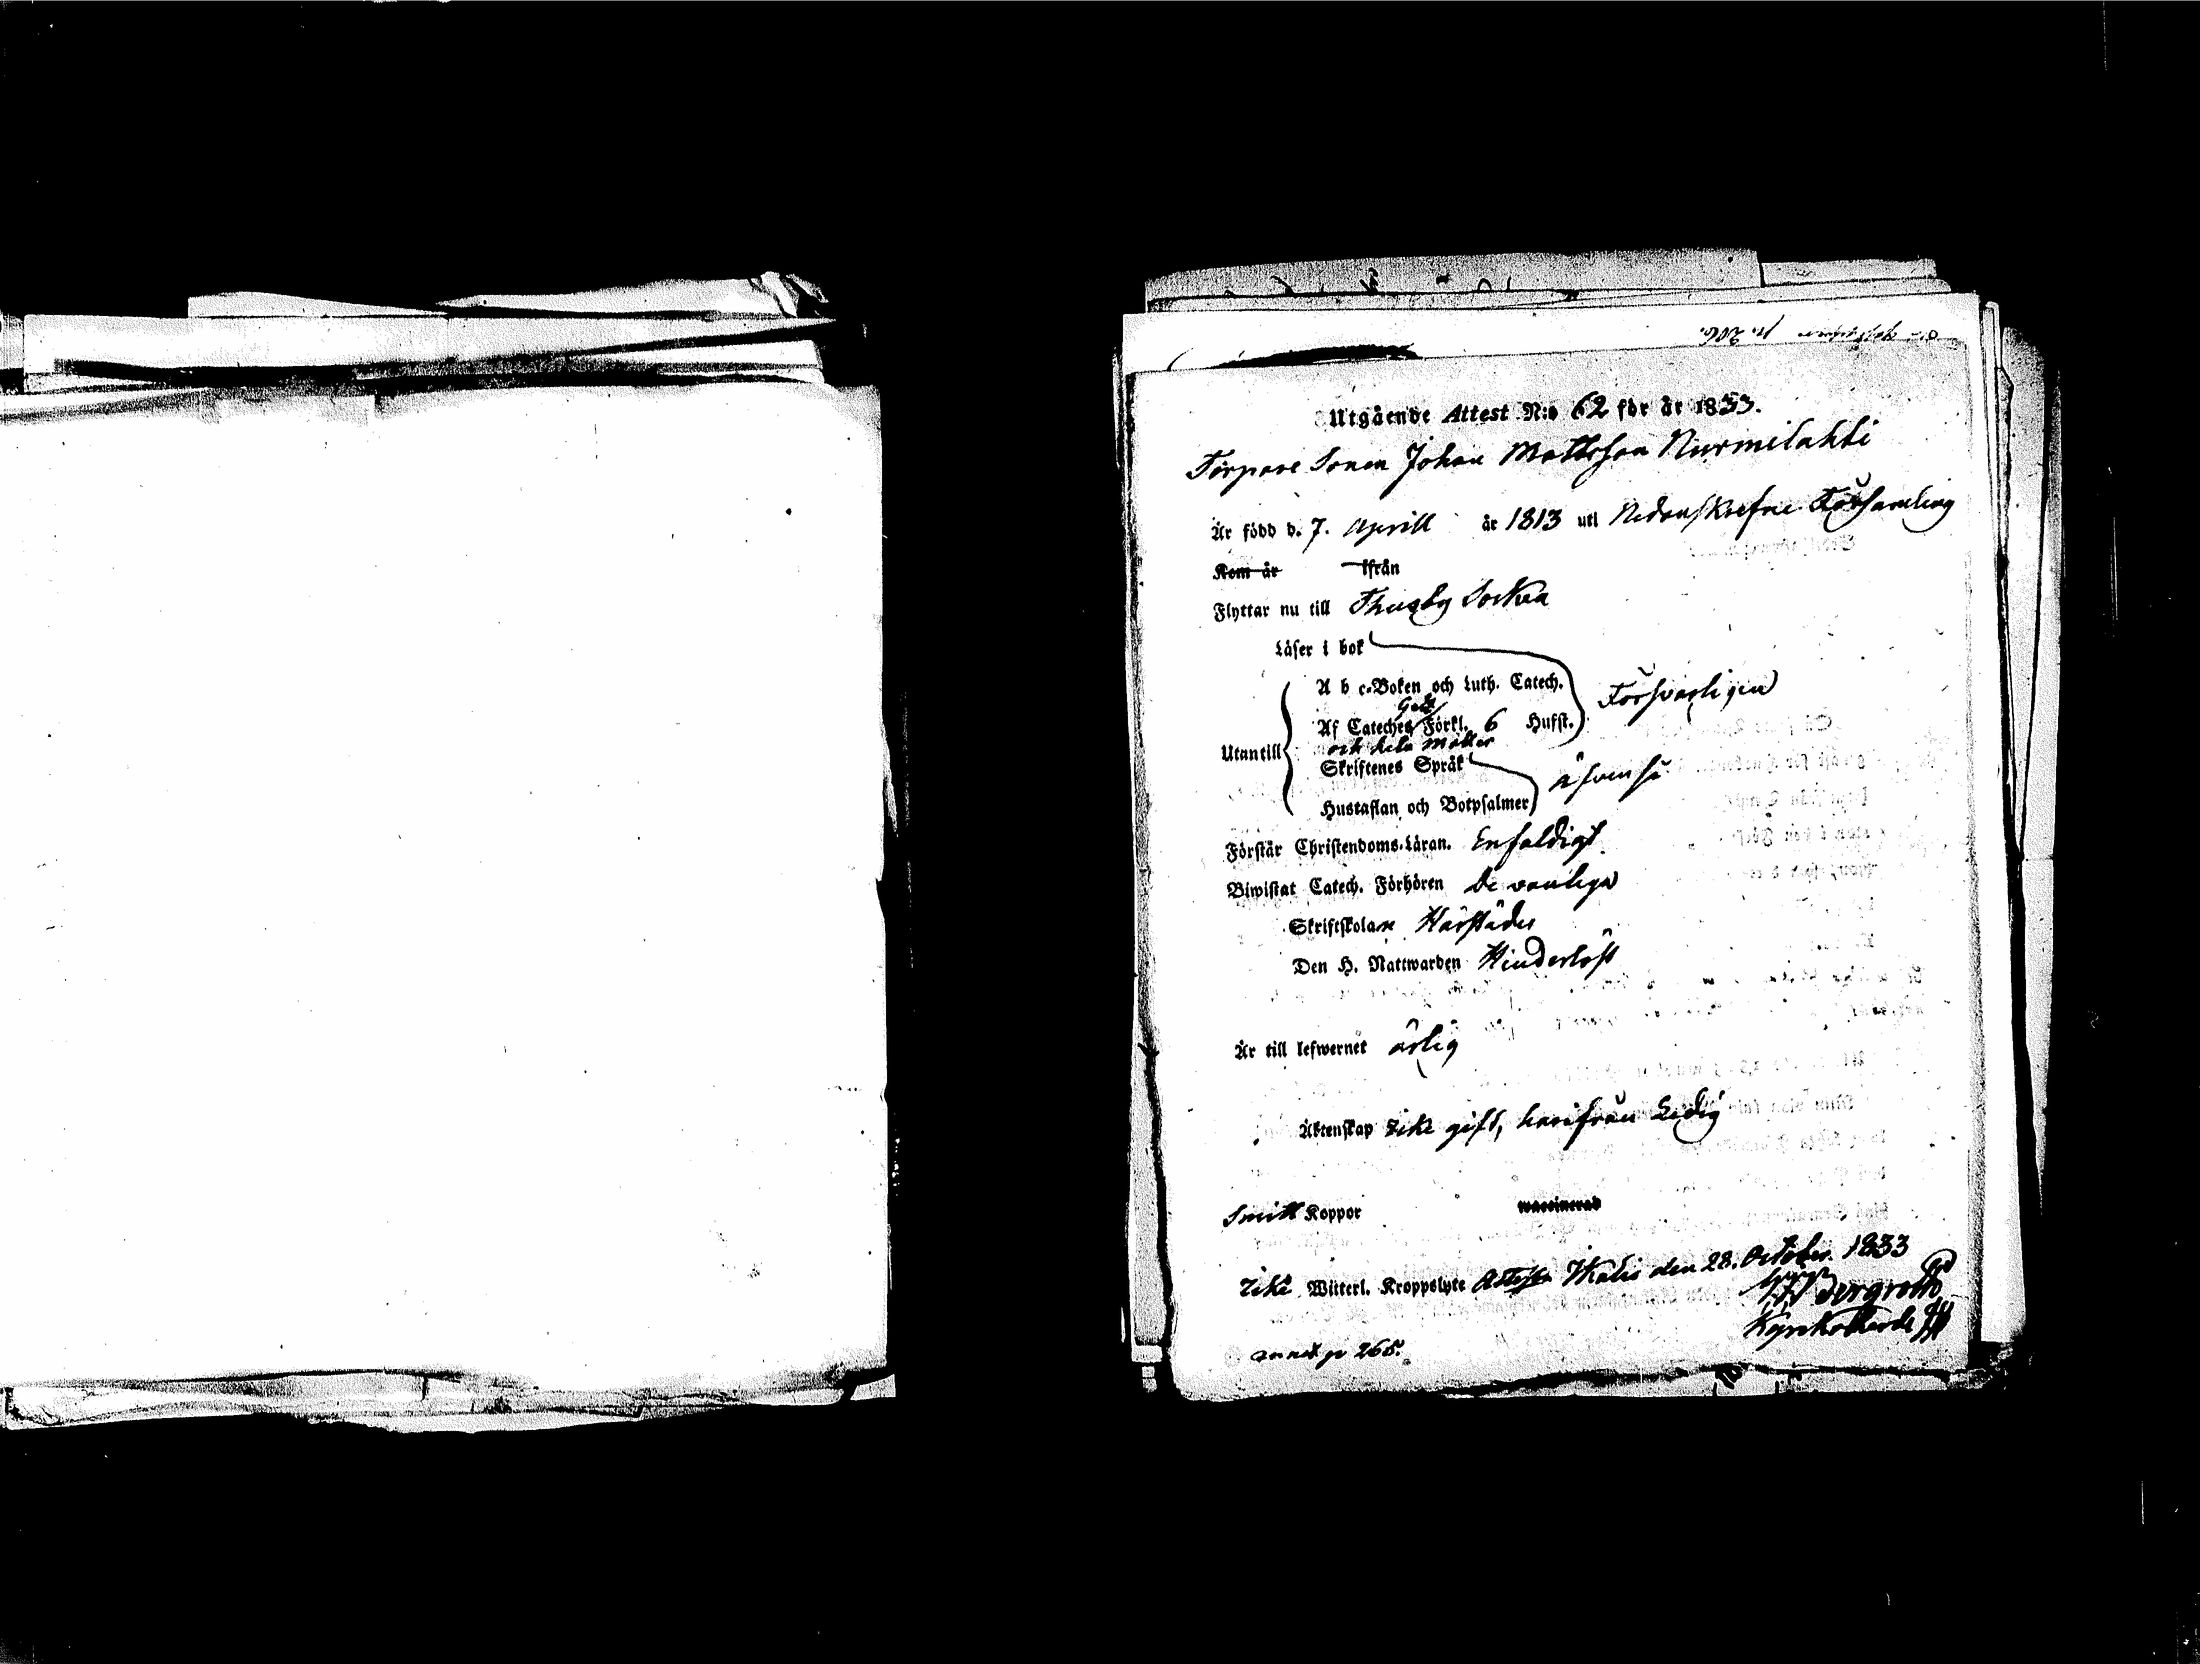 Utgående Attest N:o 62 för år 1833.
Torpare Sonen Johan Mattsson Nurmilahti
Är född d. 7. Aprill år 1813 uti Nedanskrefne Församling
Kom år ifrån
Flyttar nu till Thusby Socken
Läser i bok
A b c-Boken och Luth. Catech.
Försvarligen
Af Cateches Förkl. 6 Hufst.
och hela
Utantill
Skriftenes Språk
Hustaflan och Botpsalmer
Förstår Christendoms-Läran. Enfaldigt
Biwistat Catech. Förhören De vanliga
Skriftskolan Härstädes
Den H. Nattwarden Hinderlöst
Är till lefwernet ärlig
Äktenskap icke gift, härifrån Ledig
Koppor waccinerad
icke Witterl. Kroppslyte den 28. October. 1833
Bergroth
annex p 265.